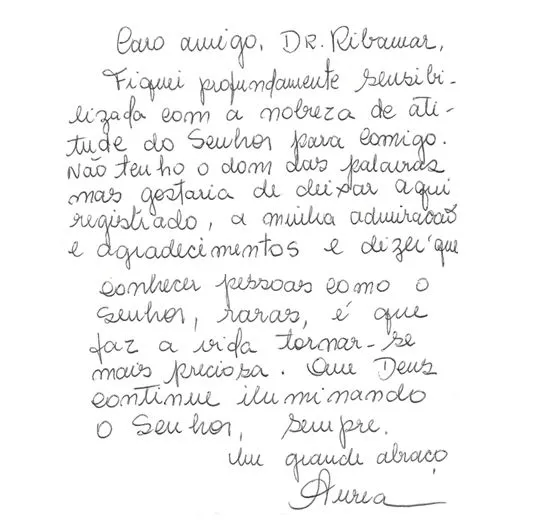 Caro amigo, DR. Ribamar,
Fiquei profundamente sensibi-
lizada com a nobreza de ati-
tude do Senhor para comigo.
Não tenho o dom das palavras
mas gostaria de deixar aqui
registrado, a minha admiração
e agradecimentos e dizer que
conhecer pessoas como o
Senhor, raras, é que
faz a vida tornar-se
mais preciosa. Que Deus
continue iluminando
o Senhor, sempre.
Um grande abraço
Aurea